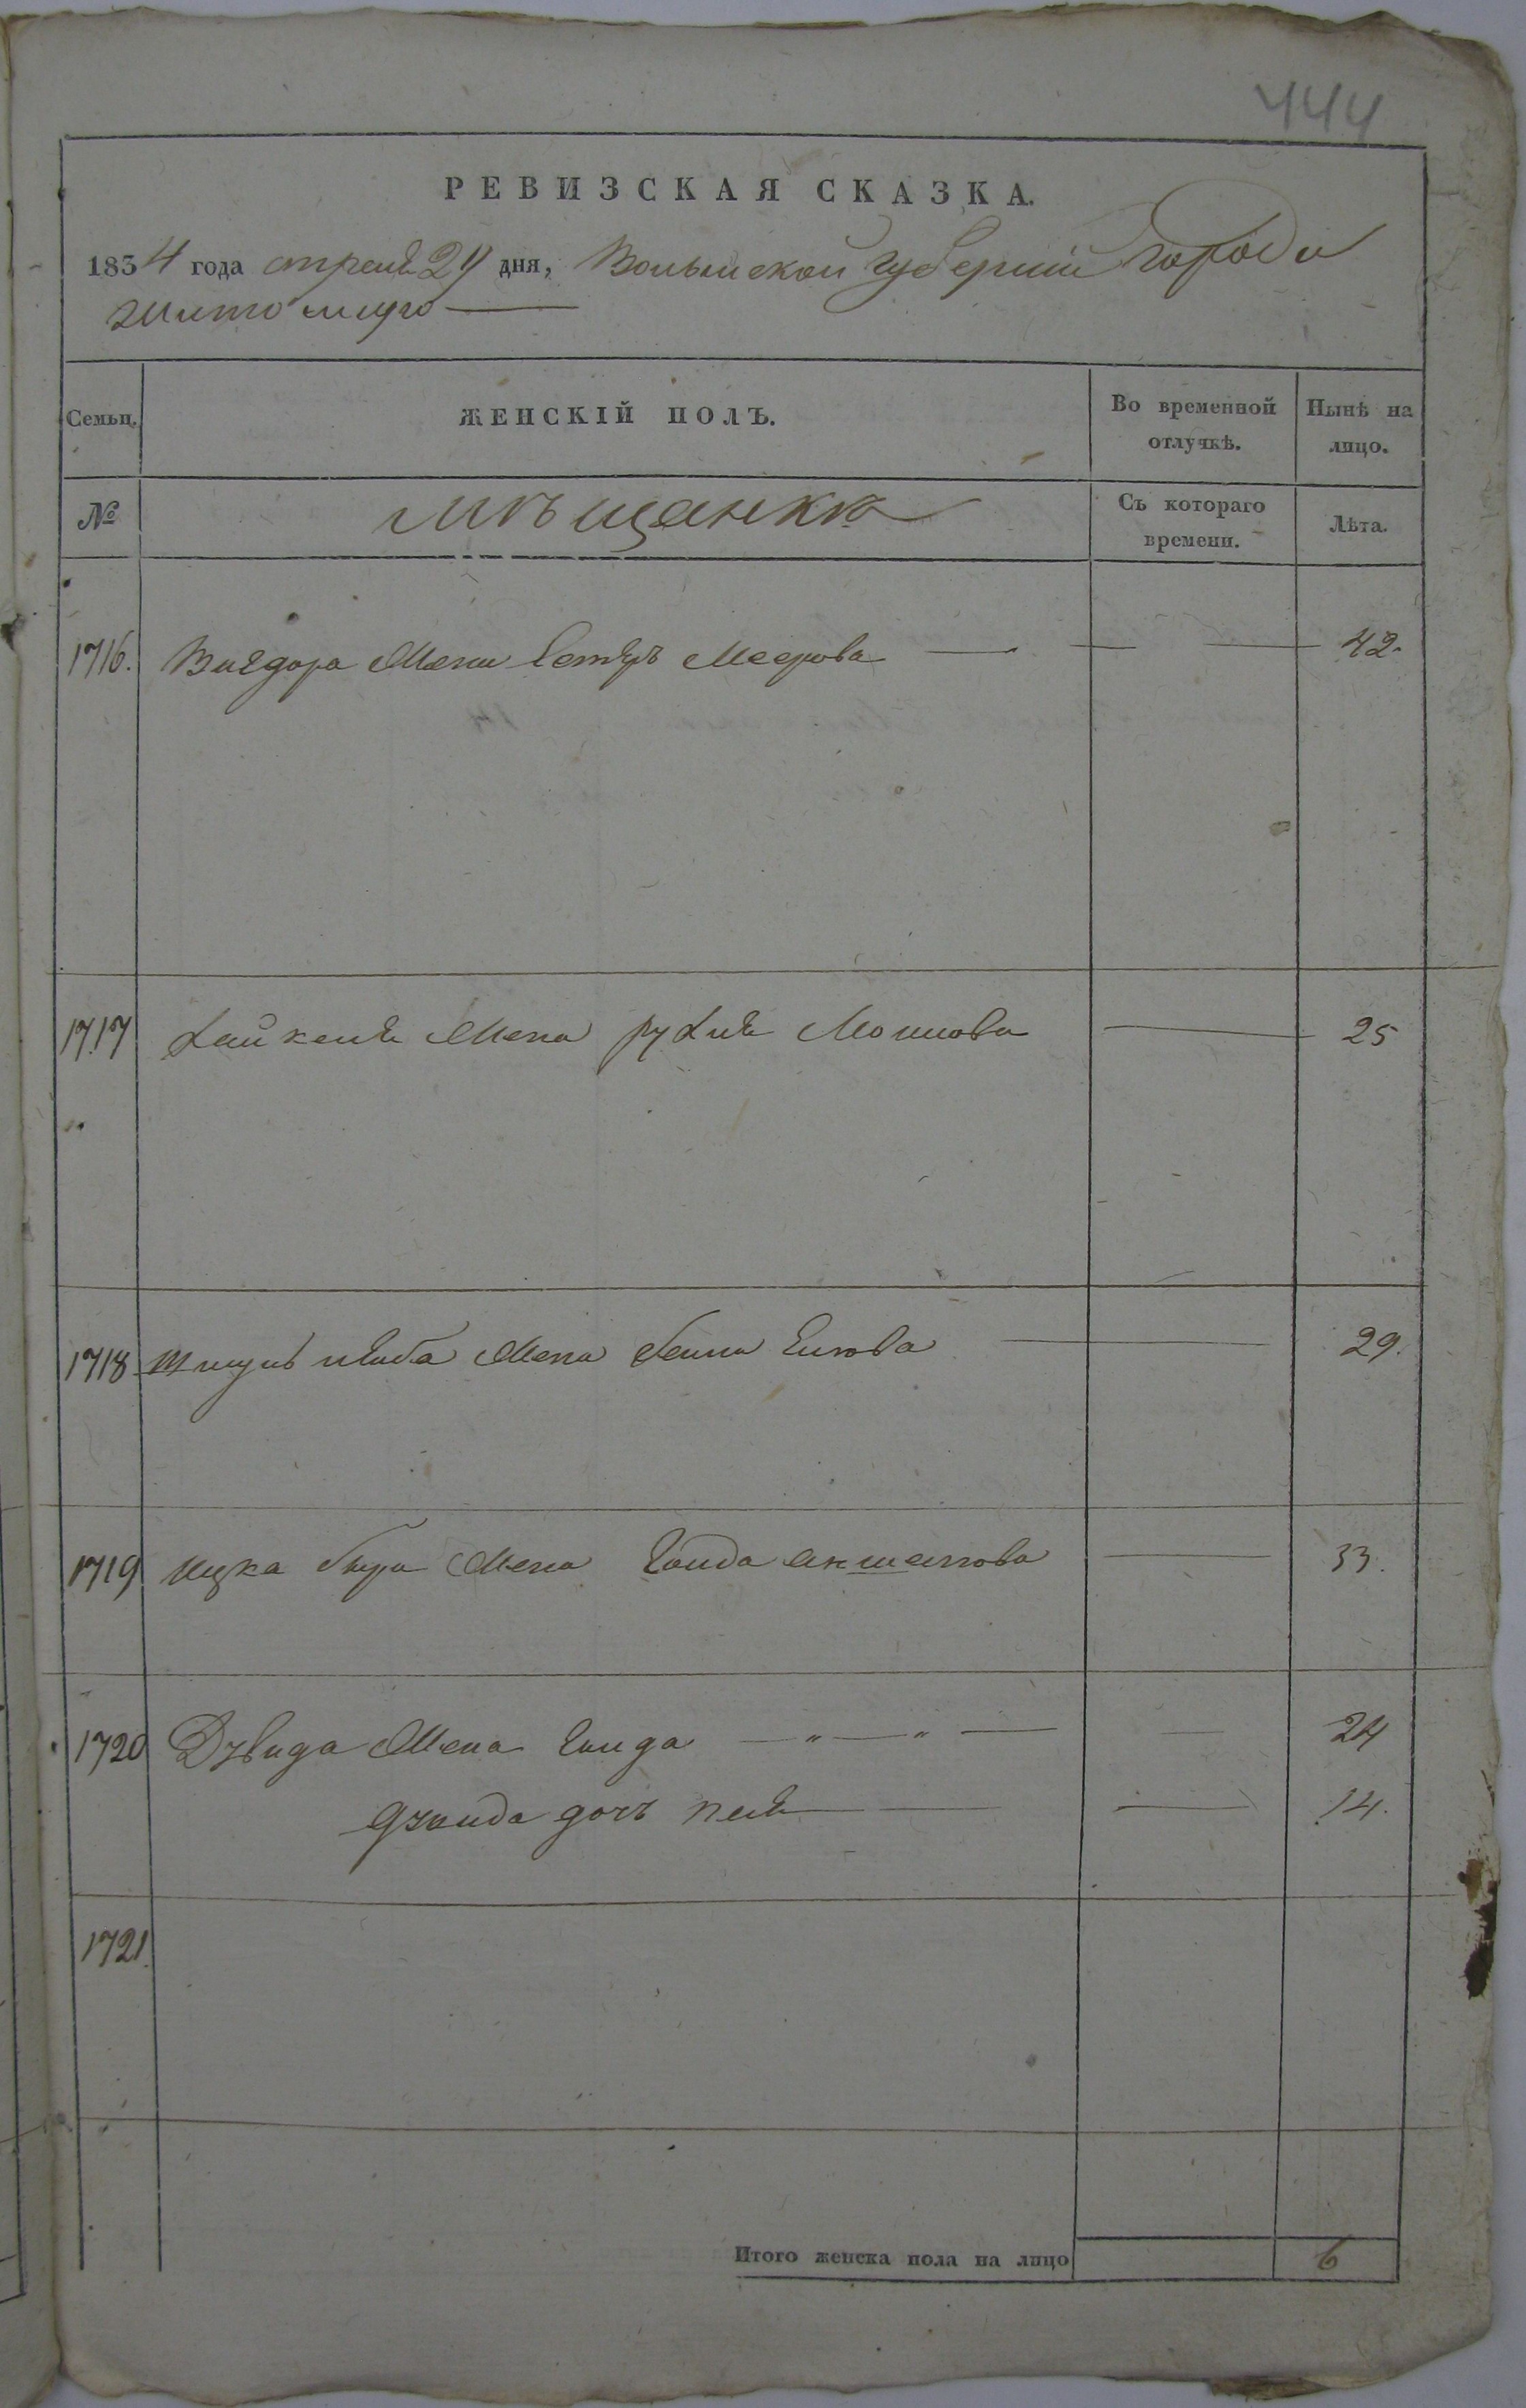 444
РЕВИЗСКАЯ СКАЗКА.
1834 года апреля 24 дня, Волынской губернии города
житомира
Семьи. ЖЕНСКІЙ ПОЛЪ. Во временной отлучкѣ. Нынѣ на лицо.
№ мѣщанкѣ Съ котораго времени. Лѣта.
1716. Вигдора Жена Естеръ Меерова — — 42.
1717 Жена Рухля Мошкова — 25
1718 Жена — 29.
1719 Ицка Бера Жена Голда — 33.
1720 Давида Жена Голда — " — " — — 24
дочь песя — — 14.
1721.
Итого женска пола на лицо 6